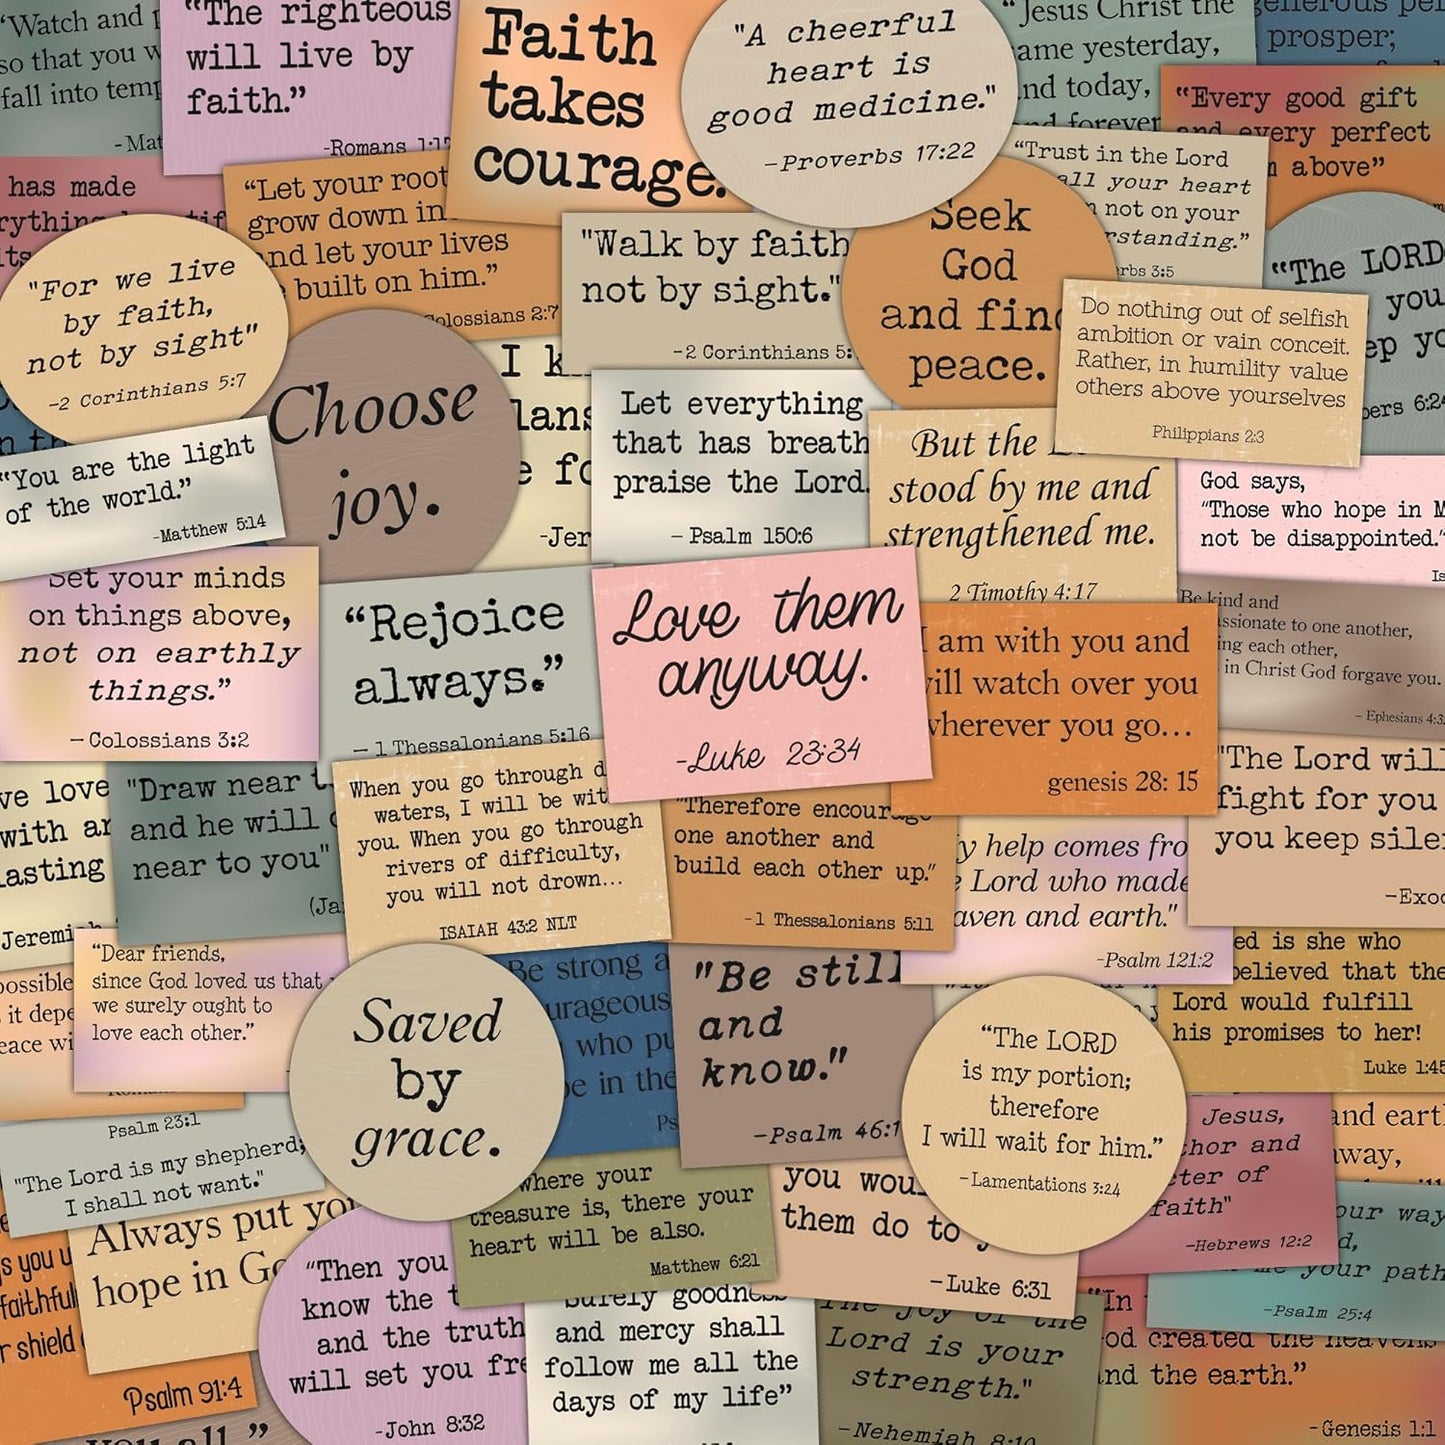 "Watch and
so that you
fall into
"The righteous
will live by
faith."
-Romans 1:17
Faith
takes
courage.
"A cheerful
heart is
good medicine."
-Proverbs 17:22
"Jesus Christ the
yesterday,
and today,
forever
generous
prosper;
"Every good gift
and every perfect
above"
has made
"Let your
grow down
and let your lives
built on him."
Colossians 2:7
"Walk by faith
not by sight."
-2 Corinthians 5:
Seek
God
and find
peace.
"Trust in the Lord
all your heart
not on your
3:5
"The LORD
you
Do nothing out of selfish
ambition or vain conceit.
Rather, in humility value
others above yourselves
Philippians 2:3
6:24
"For we live
by faith,
not by sight"
-2 Corinthians 5:7
Choose
joy.
I
"You are the light
of the world."
-Matthew 5:14
Let everything
that has breath
praise the Lord.
- Psalm 150:6
But the
stood by me and
strengthened me.
2 Timothy 4:17
God says,
"Those who hope in
not be disappointed."
Set your minds
on things above,
not on earthly
things."
- Colossians 3:2
"Rejoice
always."
- 1 Thessalonians 5:16
Love them
anyway.
-Luke 23:34
I am with you and
will watch over you
wherever you go...
genesis 28: 15
Be kind and
to one another,
each other,
in Christ God forgave you.
- Ephesians
"The Lord will
fight for you
you keep
love
with
"Draw near
and he will
near to you"
When you go through
waters, I will be
you. When you go through
rivers of difficulty,
you will not drown...
ISAIAH 43:2 NLT
"Therefore encourage
one another and
build each other up."
-1 Thessalonians 5:11
help comes
Lord who made
and earth."
-Psalm 121:2
"Dear friends,
since God loved us that
we surely ought to
love each other."
it
Saved
by
grace.
Be strong
who
in the
"Be still
and
know."
-Psalm 46:1
"The LORD
is my portion;
therefore
I will wait for him."
-Lamentations 3:24
is she who
believed that the
Lord would fulfill
his promises to her!
Luke 1:45
Psalm 23:1
"The Lord is my shepherd;
I shall not want."
Always put
hope in
where your
treasure is, there your
heart will be also.
Matthew 6:21
you
them do to
-Luke 6:31
Jesus,
and
of
faith"
-Hebrews 12:2
and
away,
way
your
-Psalm 25:4
you
shield
Psalm 91:4
"Then you
know the
and the truth
will set you
-John 8:32
Surely goodness
and mercy shall
follow me all the
days of my life"
The joy of the
Lord is your
strength."
-Nehemiah 8:10
"In
created the heavens
and the earth."
-Genesis 1:1
all"